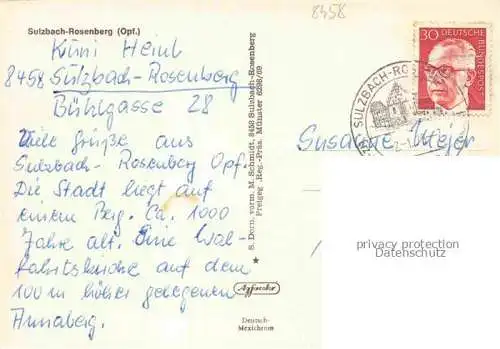 8458
Sulzbach-Rosenberg (Opf.)
Küni Heinl
8458 Sulzbach-Rosenberg
Bühlgasse 28
Viele Grüße aus
Sulzbach-Rosenberg Opf.
Die Stadt liegt auf
einem Berg. Ca. 1000
Jahre alt. Eine Wal-
fahrtskirche auf dem
100 m höher gelegenen
Annaberg.
S. Dorn, vorm. M. Schmidt, 8458 Sulzbach-Rosenberg
Freigeg. Reg.-Präs. Münster 6298/69
Agfacolor
Deutsch-
Mexichrom
30 DEUTSCHE
BUNDESPOST
SULZBACH-RO
Susanne Meier
privacy protection
Datenschutz